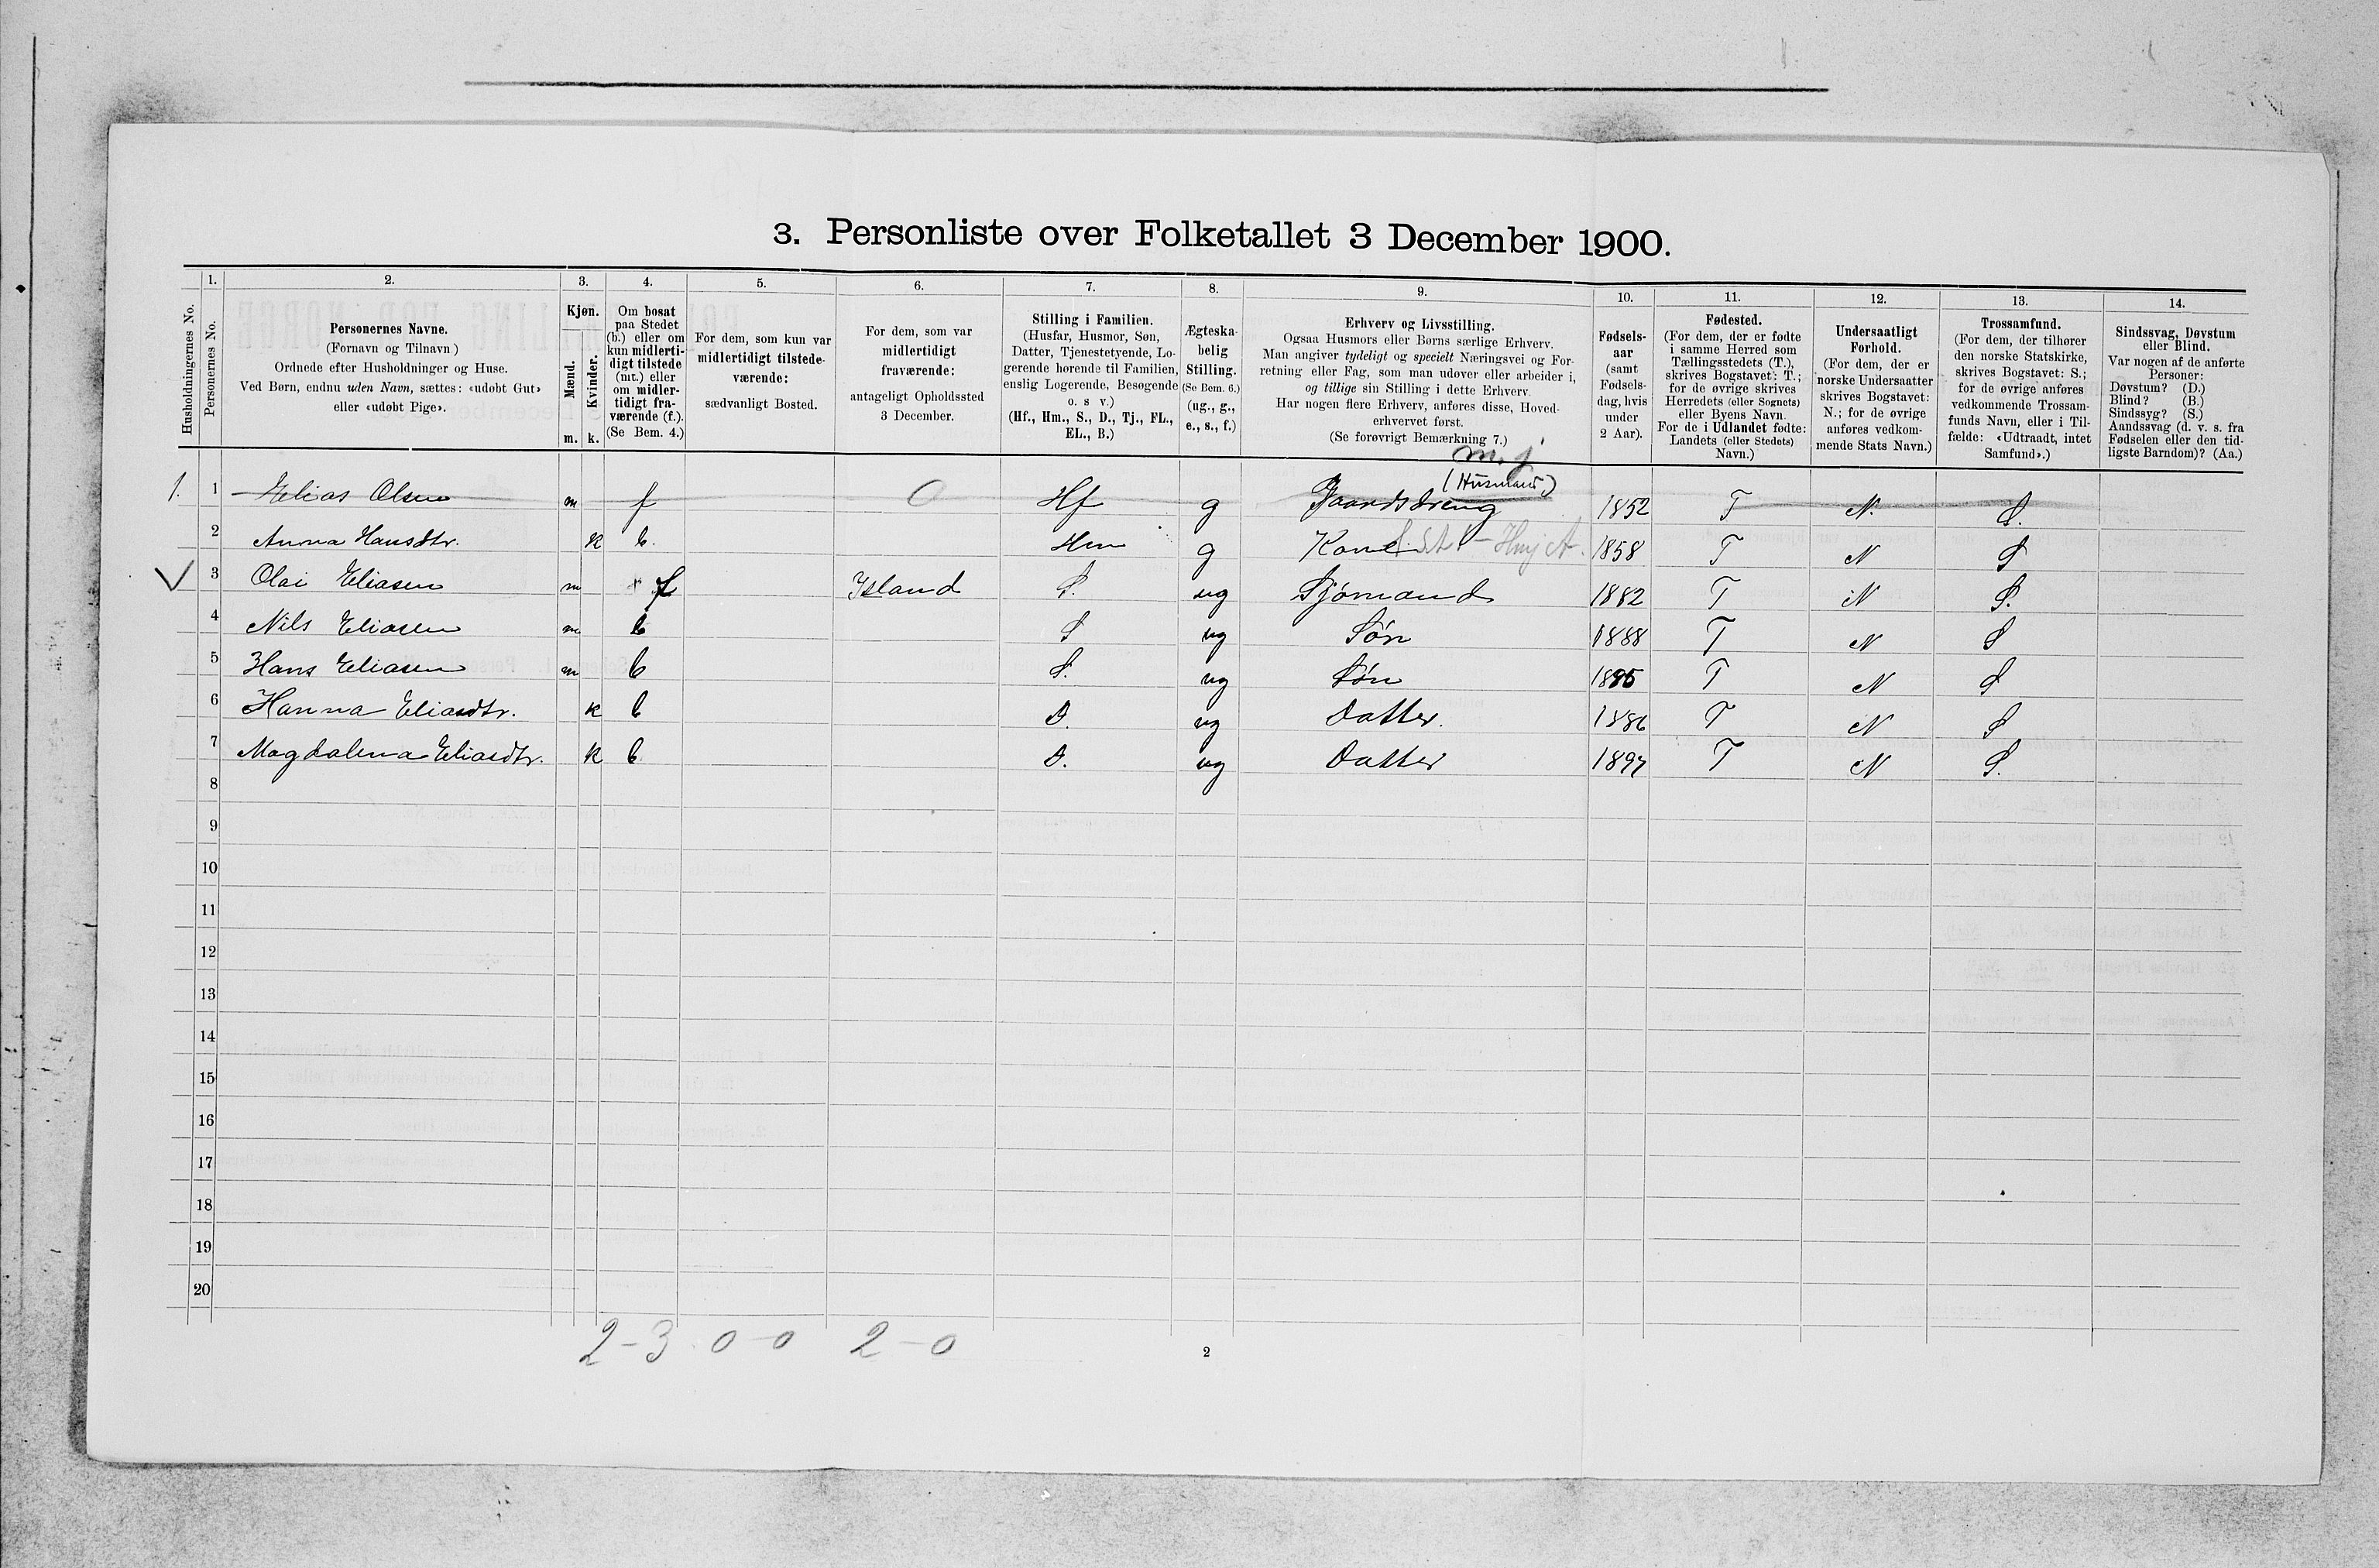 3. Personliste over Folketallet 3 December 1900.
1. 2. 3. 4. 5. 6. 7. 8. 9. 10. 11. 12. 13. 14.
Husholdningernes No.
Personernes No.
Personernes Navne.
(Fornavn og Tilnavn)
Ordnede efter Husholdninger og Huse.
Ved Børn, endnu uden Navn, sættes: «udøbt Gut»
eller «udøbt Pige».
Kjøn.
Mænd.
Kvinder.
m. k.
Om bosat
paa Stedet
(b.) eller om
kun midlerti-
digt tilstede
(mt.) eller
om midler-
tidigt fra-
værende (f.).
(Se Bem. 4.)
For dem, som kun var
midlertidigt tilstede-
værende:
sædvanligt Bosted.
For dem, som var
midlertidigt
fraværende:
antageligt Opholdssted
3 December.
Stilling i Familien.
(Husfar, Husmor, Søn,
Datter, Tjenestetyende, Lo-
gerende hørende til Familien,
enslig Logerende, Besøgende
o. s v.)
(Hf., Hm., S., D., Tj., FL.,
EL., B.)
Ægteska-
belig
Stilling.
(Se Bem. 6.)
(ug., g.,
e., s., f.)
Erhverv og Livsstilling.
Ogsaa Husmors eller Børns særlige Erhverv.
Man angiver tydeligt og specielt Næringsvei og For-
retning eller Fag, som man udøver eller arbeider i,
og tillige sin Stilling i dette Erhverv.
Har nogen flere Erhverv, anføres disse, Hoved-
erhvervet først.
(Se forøvrigt Bemærkning 7.)
Fødsels-
aar
(samt
Fødsels-
dag, hvis
under
2 Aar).
Fødested.
(For dem, der er fødte
i samme Herred som
Tællingsstedets (T.),
skrives Bogstavet: T.;
for de øvrige skrives
Herredets (eller Sognets)
eller Byens Navn.
For de i Udlandet fødte:
Landets (eller Stedets)
Navn.)
Undersaatligt
Forhold.
(For dem, der er
norske Undersaatter
skrives Bogstavet:
N.; for de øvrige
anføres vedkom-
mende Stats Navn.)
Trossamfund.
(For dem, der tilhører
den norske Statskirke,
skrives Bogstavet: S.;
for de øvrige anføres
vedkommende Trossam-
funds Navn, eller i Til-
fælde: «Udtraadt, intet
Samfund».)
Sindssvag, Døvstum
eller Blind.
Var nogen af de anførte
Personer:
Døvstum? (D.)
Blind? (B.)
Sindssyg? (S.)
Aandssvag (d. v. s. fra
Fødselen eller den tid-
ligste Barndom)? (Aa.)
m. j.
(Husmand)
1. 1 Elias Olsen m f 0 Hf g Gaardsdreng 1852 T N. S.
2 Anna Hansdtr. k b. Hm g Kone 1858 T N S
3 Olai Eliasen m f Island S. ug Sjømand 1882 T N S.
4 Nils Eliasen m b S ug Søn 1888 T N S
5 Hans Eliasen m b S. ug Søn 1895 T N S
6 Hanna Eliasdtr. k b D. ug Datter. 1886 T N S
7 Magdalena Eliasdtr. k b D. ug Datter 1897 T N S.
8
9
10
11
12
13
14
15
16
17
18
19
20
2-3 0-0 2-0
2